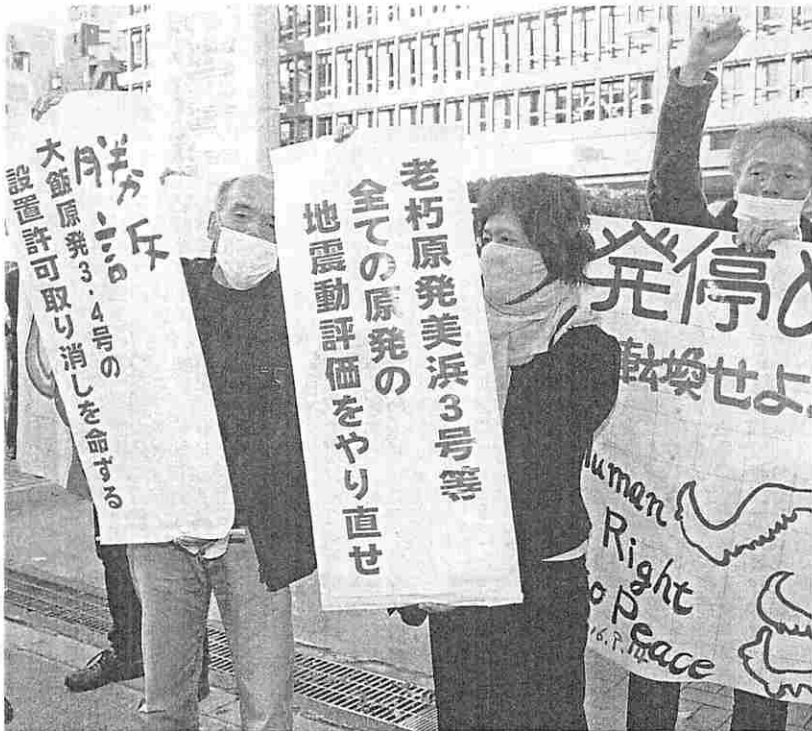 勝訴
大飯原発3・4号の
設置許可取り消しを命ずる
老朽原発美浜3号等
全ての原発の
地震動評価をやり直せ
発停
転換せよ
Human
Right
Peace